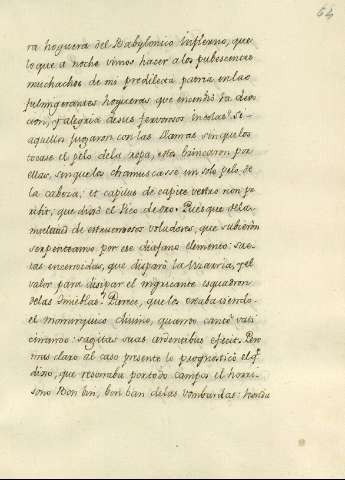 64
ra hoguera del Babylonico Infierno, que
lo que a noche vimos hacer a los pubescentes
muchachos de mi predilecta patria en las
fulmigerantes hogueras que encendió la devo
cion, y alegria de sus fervorosos Incolas? Si
aquellos jugaron con las llamas sin que les
tocase el pelo de la ropa, estos brincaron por
ellas, sin que les chamuscasse un solo pelo de
la cabeza; et capilus de capite vestro non pe
ribit; que dixo el Pico de oro. Pues que de la
multitud de estruendosos voladores, que subieron
serpenteando por ese diafano elemento: sae
tas encendidas, que disparò la bizarria, y el
valor para disipar el nigricante esquadron
de las tinieblas? Parece, que les estaba viendo
el monarquico chirino, quando cantò vati
cinando: sagitas suas ardentibus efecit. Pero
mas claro al caso presente lo pronosticò el qe.
dixo, que resonaba por todo campo el horri
sono Bon bin, bon ban de las bombardas: horrida